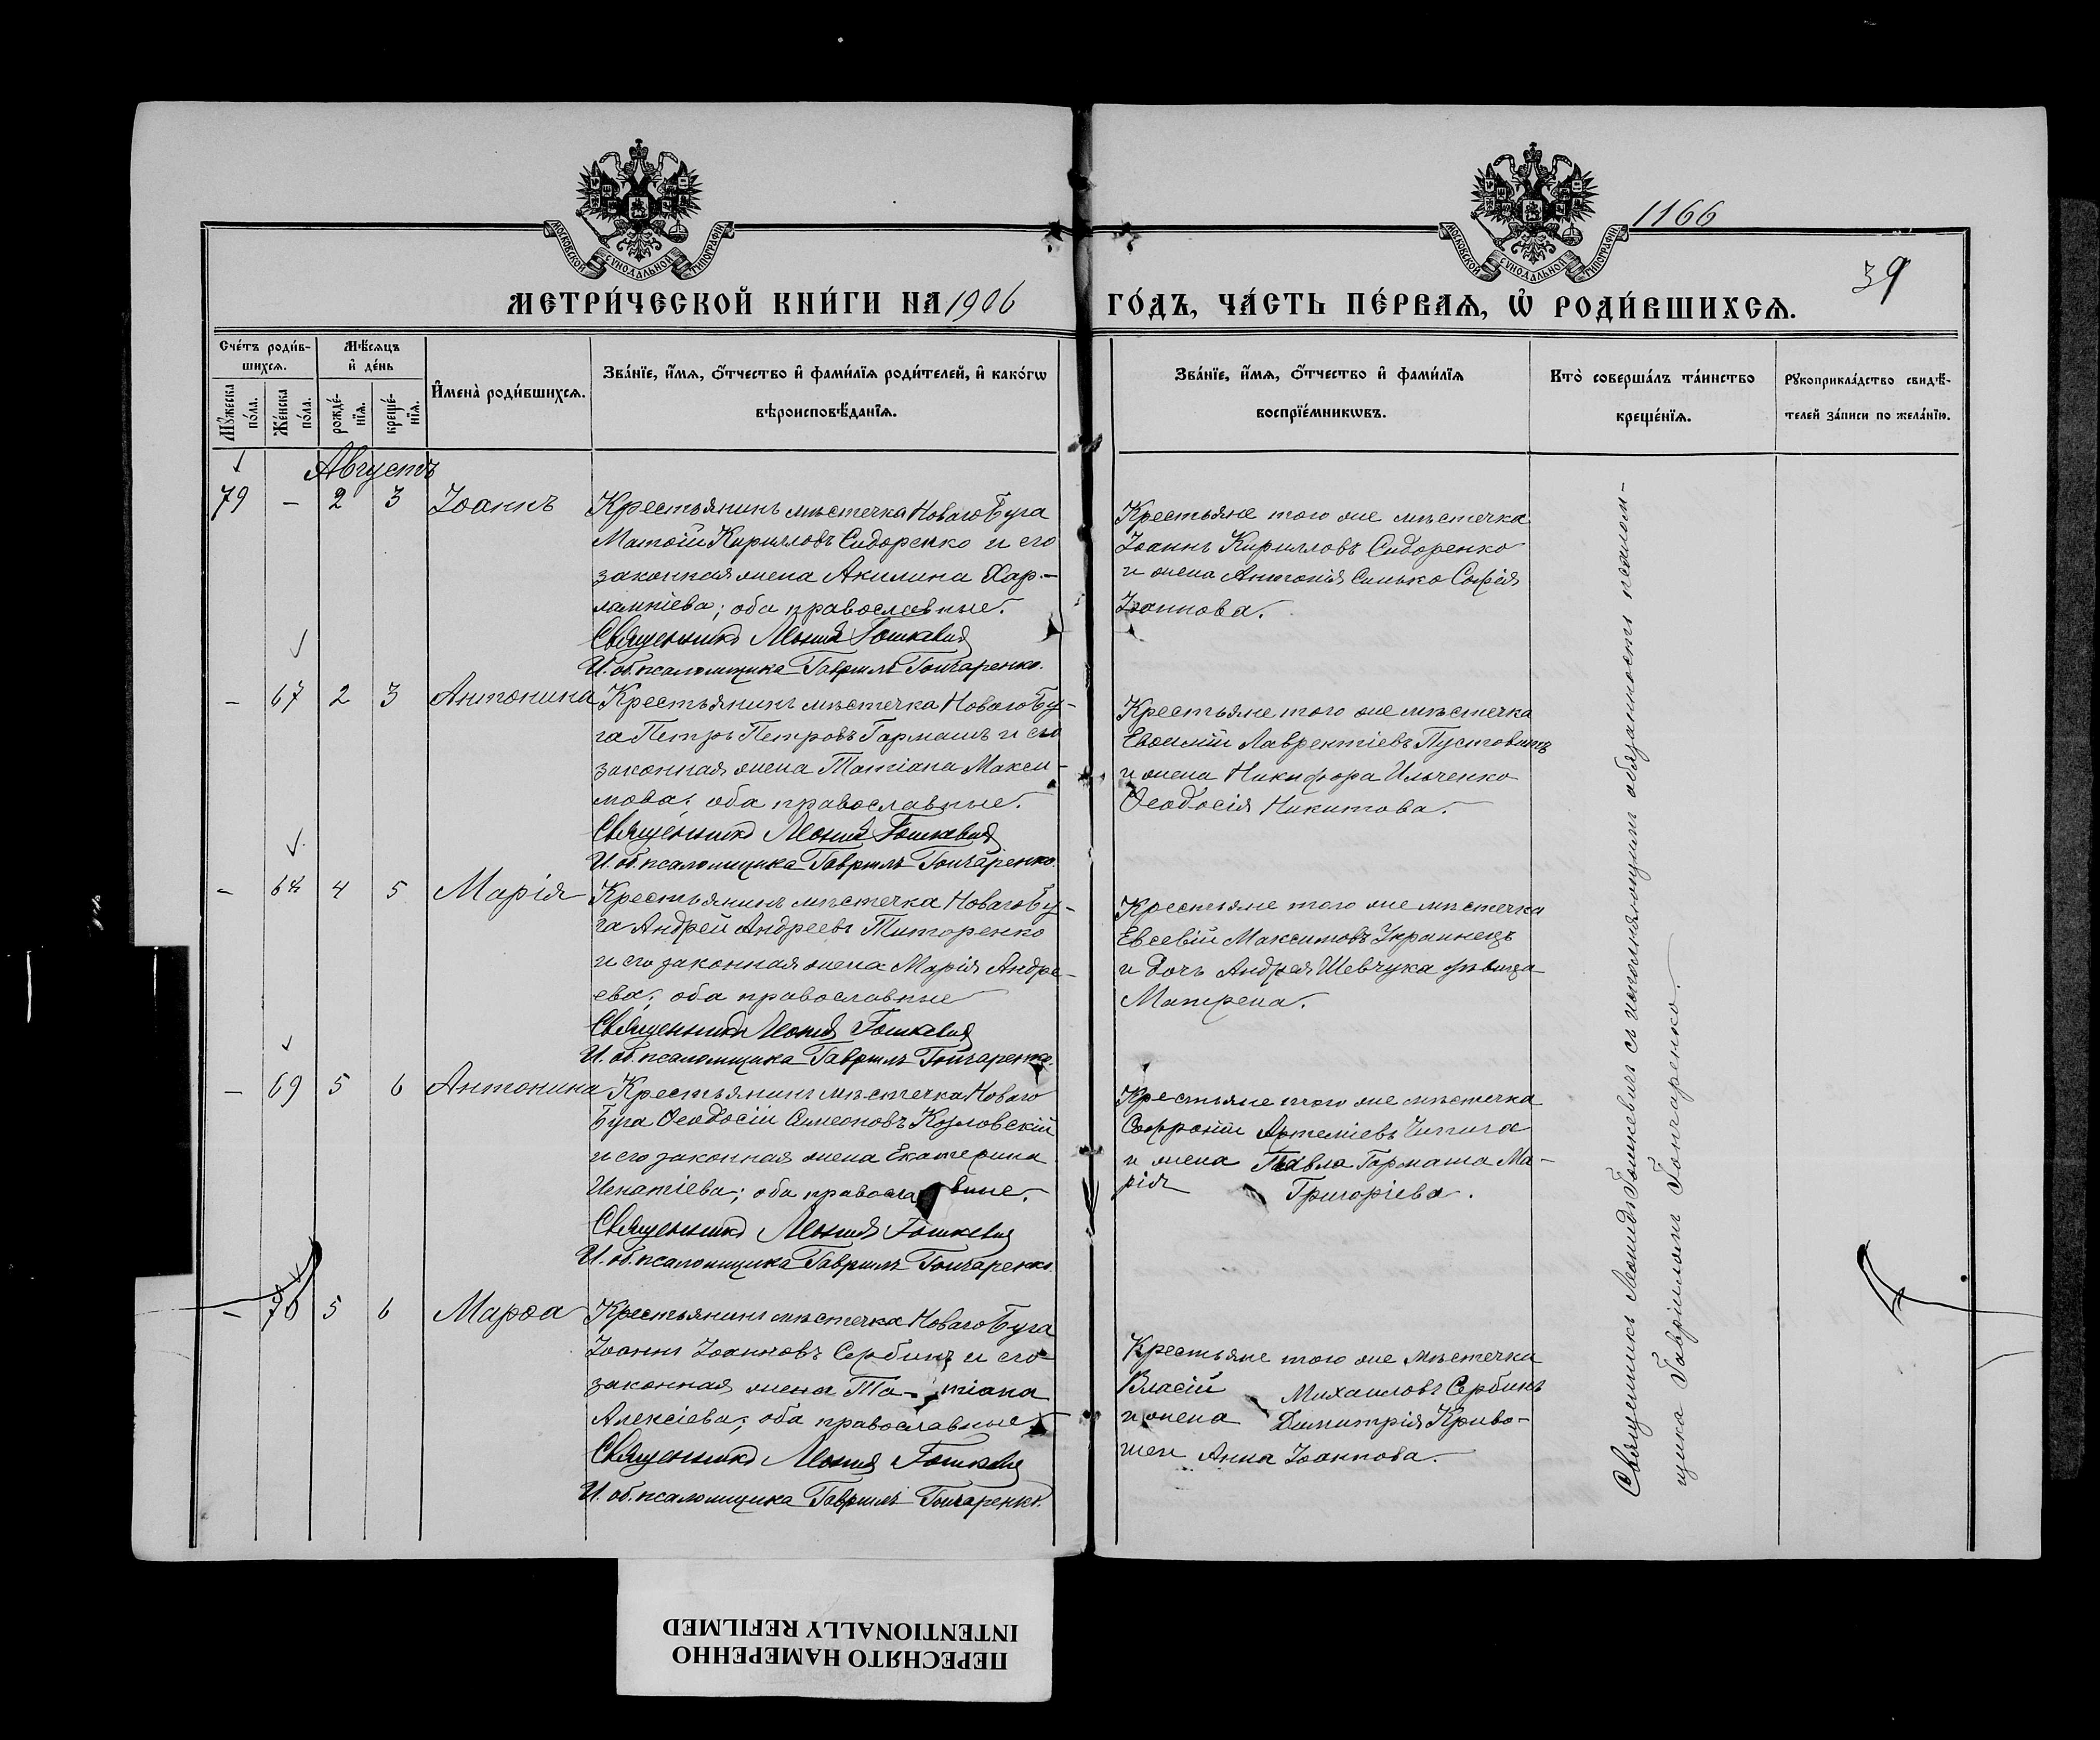 1166
39
МОСКОВСКОЙ СѴНОДАЛЬНОЙ ТИПОГРАФІИ
МОСКОВСКОЙ СѴНОДАЛЬНОЙ ТИПОГРАФІИ
МЕТРИ́ЧЕСКОЙ КНИ́ГИ НА 1906 ГО́ДЪ, ЧА́СТЬ ПЕ́РВАѦ, Ѡ҆ РОДИ́ВШИХСѦ.
Сче́тъ роди́в-
шихсѧ.
Мѣ́сѧцъ
и҆ де́нь
Мꙋ́жеска
по́ла.
Же́нска
по́ла.
рожде́-
нїѧ.
креще́-
нїѧ.
И҆мена̀ роди́вшихсѧ.
Зва́нїе, и҆́мѧ, ѻ҆́тчество и҆ фами́лїѧ роди́телей, и҆ како́гѡ
вѣроисповѣ́данїѧ.
Зва́нїе, и҆́мѧ, ѻ҆́тчество и҆ фами́лїѧ
воспрїе́мникѡвъ.
Кто̀ соверша́лъ та́инство
креще́нїѧ.
Рꙋкоприкла́дство свидѣ́-
телей за́писи по жела́нїю.
Августъ
79 – 2 3 Іоаннъ
Крестьянинъ мѣстечка Новаго Буга
Матѳій Кирилловъ Сидоренко и его
законная жена Акилина Хар-
лампіева; оба православные.
Священникъ Леонидъ Гошкевичъ
И. об. псаломщика Гавріилъ Гончаренко.
Крестьяне того же мѣстечка
Іоаннъ Кирилловъ Сидоренко
и жена Антонія Синько Софія
Іоаннова.
– 67 2 3 Антонина
Крестьянинъ мѣстечка Новаго Бу-
га Петръ Петровъ Гармашъ и его
законная жена Татіана Макси-
мова; оба православные.
Священникъ Леонидъ Гошкевичъ
И. об. псаломщика Гавріилъ Гончаренко.
Крестьяне того же мѣстечка
Евѳимій Лаврентіевъ Пустовитъ
и жена Никифора Ильченко
Ѳеодосія Никитова.
– 68 4 5 Марія
Крестьянинъ мѣстечка Новаго Бу-
га Андрей Андреевъ Титоренко
и его законная жена Марія Андре-
ева; оба православные
Священникъ Леонидъ Гошкевичъ
И. об. псаломщика Гавріилъ Гончаренко.
Крестьяне того же мѣстечка
Евсевій Максимовъ Украинецъ
и дочь Андрея Шевчука дѣвица
Матрена.
– 69 5 6 Антонина
Крестьянинъ мѣстечка Новаго
Буга Ѳеодосій Симеоновъ Козловскій
и его законная жена Екатерина
Игнатіева; оба православные.
Священникъ Леонидъ Гошкевичъ
И. об. псаломщика Гавріилъ Гончаренко.
Крестьяне того же мѣстечка
Софроній Артеміевъ Чипига
и жена Павла Гармаша Ма-
рія Григоріева.
– 70 5 6 Марѳа
Крестьянинъ мѣстечка Новаго Буга
Іоаннъ Іоанновъ Сербинъ и его
законная жена Та- тіана
Алексіева; оба православные
Священникъ Леонидъ Гошкевичъ
И. об. псаломщика Гавріилъ Гончаренко.
Крестьяне того же мѣстечка
Власій Михаиловъ Сербинъ
и жена Димитрія Криво-
шеи Анна Іоаннова.
Священникъ Леонидъ Гошкевичъ съ исполняющимъ обязанность псалом-
щика Гавріиломъ Гончаренко.
ПЕРЕСНЯТО НАМЕРЕННО
INTENTIONALLY REFILMED